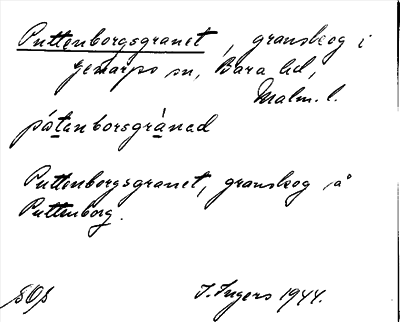 Puttenborgsgranet, granskog i
Genarps sn, Bara hd,
Malm. l.
pótanborsgrànad
Puttenborgsgranet, granskog på
Puttenborg.
I. Ingers 1944.